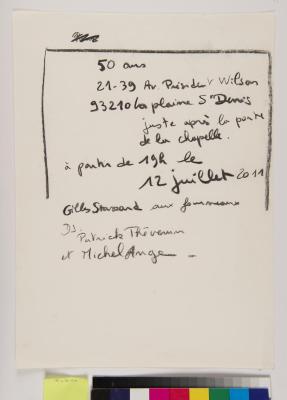 50 ans
21-39 Av. Président Wilson
93210 La plaine St Denis
juste après la porte
de la chapelle.
à partir de 19h le
12 juillet 2011
Gilles Stassard aux fourneaux
DJ. Patrick Thévenin
et Michel Ange